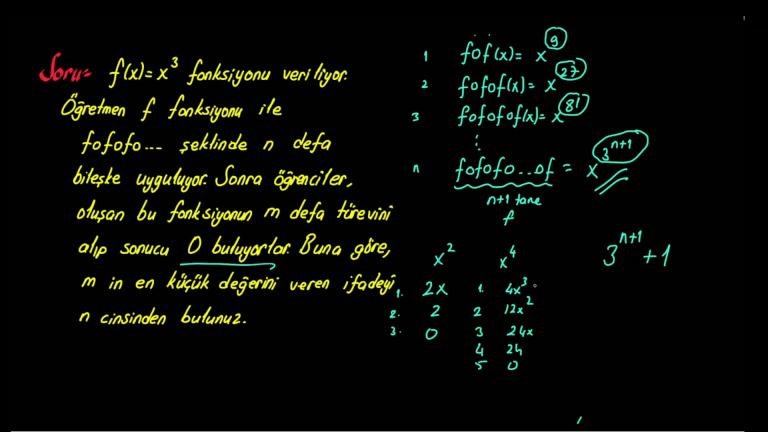 Soru= f(x)=x³ fonksiyonu veriliyor.
Öğretmen f fonksiyonu ile
fofofo... şeklinde n defa
bileşke uyguluyor. Sonra öğrenciler,
oluşan bu fonksiyonun m defa türevini
alıp sonucu 0 buluyorlar. Buna göre,
m in en küçük değerini veren ifadeyi
n cinsinden bulunuz.
1 fof(x)= x⁹
2 fofof(x)= x²⁷
3 fofofof(x)= x⁸¹
⋮
n fofofo...of = x³ⁿ⁺¹
n+1 tane
f
x² x⁴
1. 2x 1. 4x³
2. 2 2 12x²
3. 0 3 24x
4 24
5 0
3ⁿ⁺¹+1